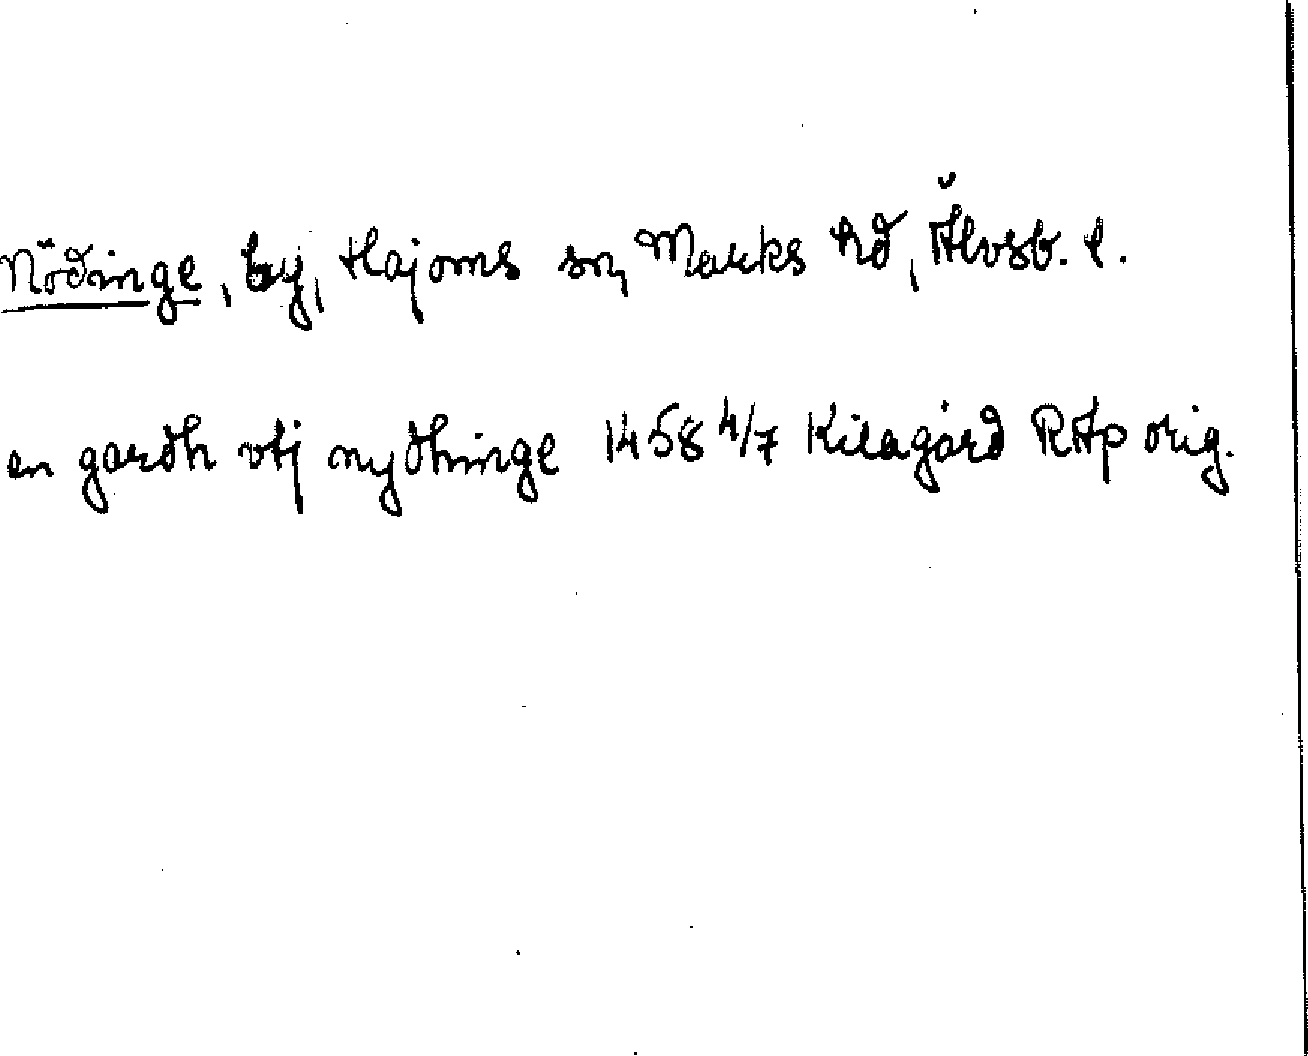 Nödinge, by, Hajoms sn, Marks hd, Älvsb. l.
en gardh vtj nydhinge 1458 4/7 Kilagård RAp orig.